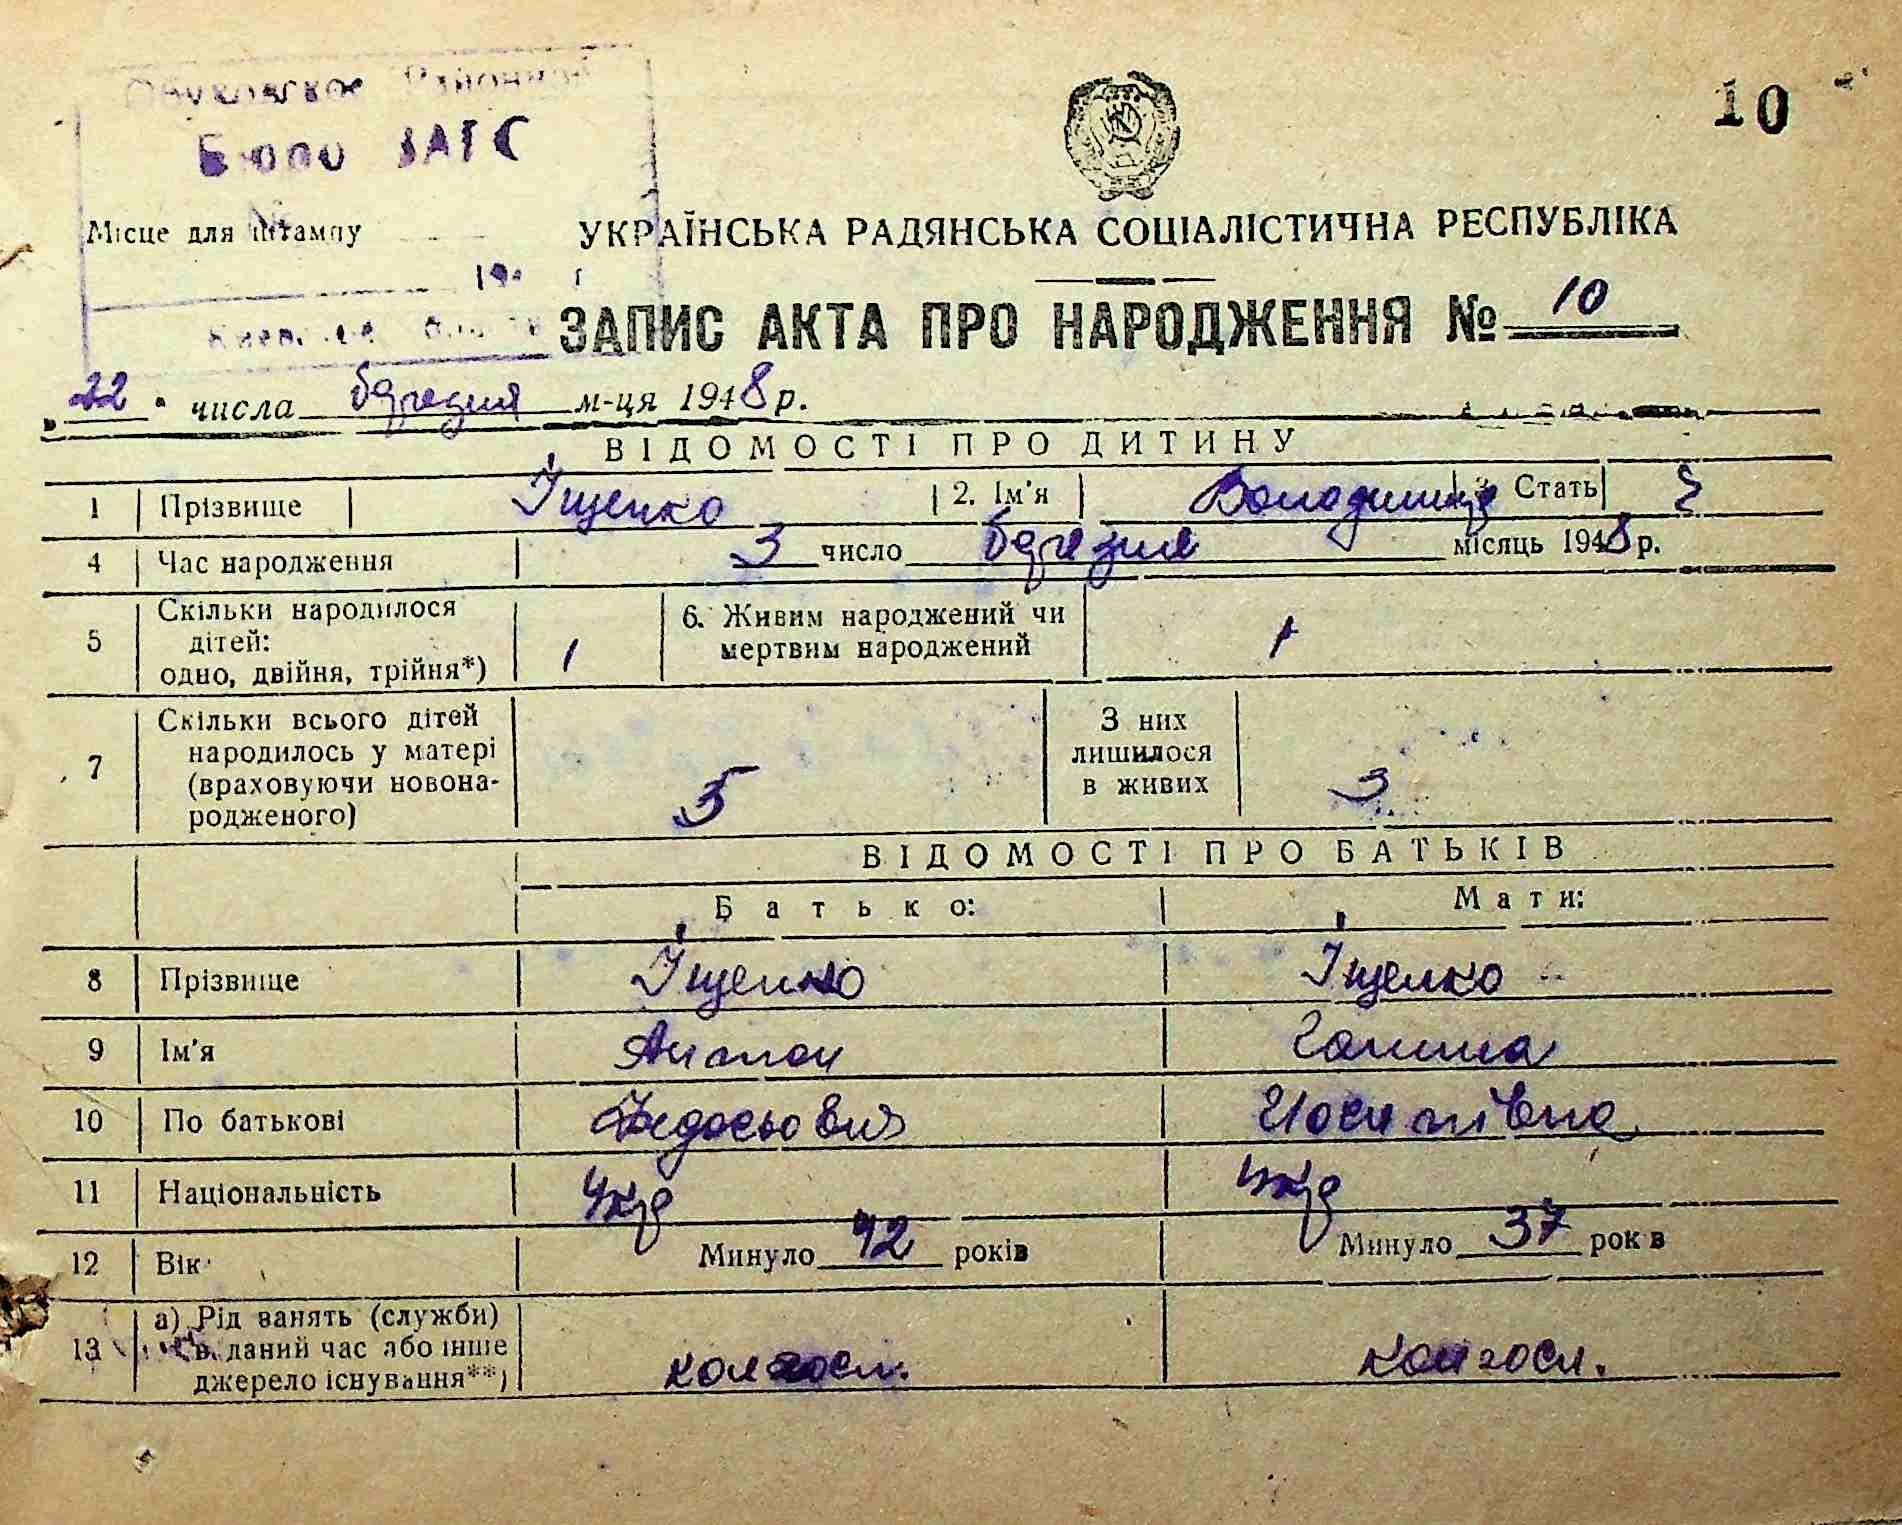 Обуховское Районное
Бюро ЗАГС
10
Місце для штампу
УКРАЇНСЬКА РАДЯНСЬКА СОЦІАЛІСТИЧНА РЕСПУБЛІКА
19 г
ЗАПИС АКТА ПРО НАРОДЖЕННЯ № 10
„22" числа березня м-ця 1948 р.
ВІДОМОСТІ ПРО ДИТИНУ
1 Прізвище Іщенко 2. Ім'я Володимир 3 Стать
4 Час народження 3 число березня місяць 1948 р.
5 Скільки народилося дітей: одно, двійня, трійня*) 1 6. Живим народжений чи мертвим народжений 1
7 Скільки всього дітей народилось у матері (враховуючи новонародженого) 5 З них лишилося в живих 3
ВІДОМОСТІ ПРО БАТЬКІВ
Батько: Мати:
8 Прізвище Іщенко Іщенко
9 Ім'я Антон Ганна
10 По батькові Федосьович Йосипівна
11 Національність Укр Укр
12 Вік Минуло 42 років Минуло 37 років
13 а) Рід занять (служби) в даний час або інше джерело існування**) колгосп. колгосп.